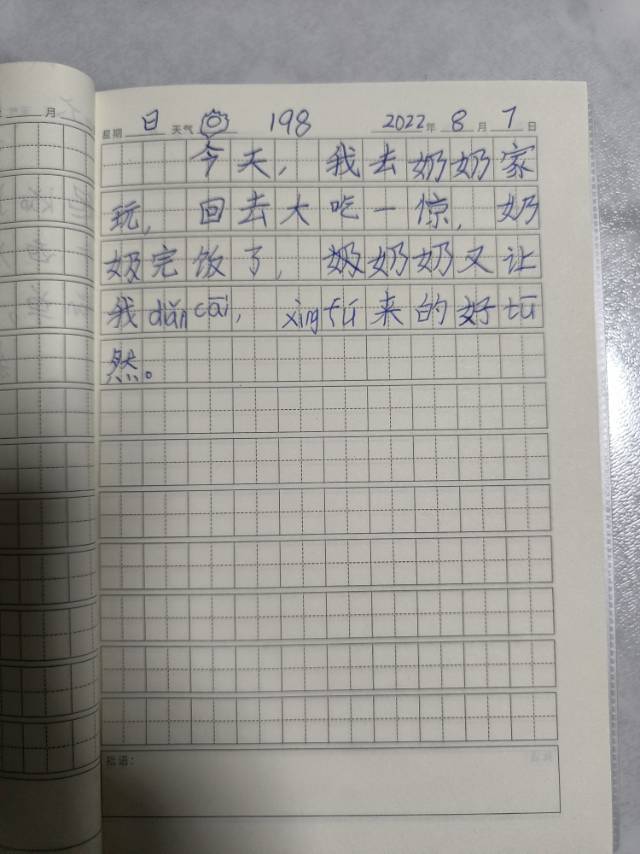 月
星期 日 天气 198 2022年 8月 7日
今天，我去奶奶家
玩，回去大吃一惊，奶
奶完饭了，奶奶又让
我diǎn cāi，xìng fú来的好tū
然。
批语：